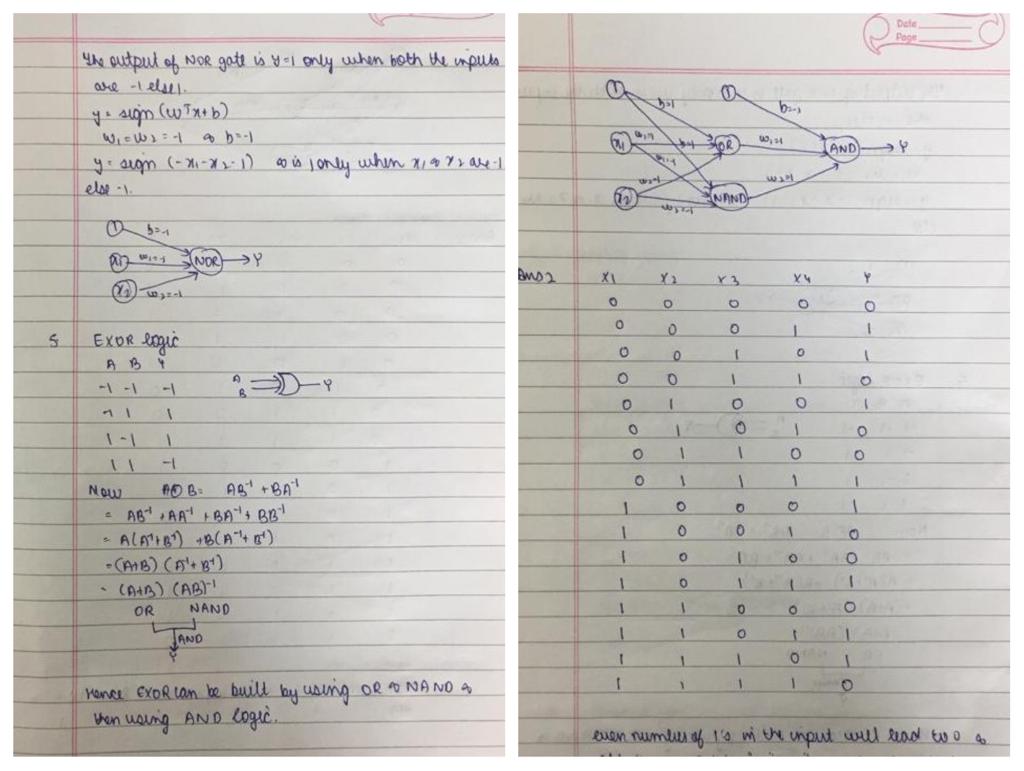 The output of NOR gate is Y=1 only when both the inputs
are -1 else 1.
y = sign (wᵀx+b)
w₁=w₂ = -1 & b=-1
y = sign (-x₁-x₂-1) & is 1 only when x₁ & x₂ are -1
else -1.
1 b=-1
x1 w₁=-1 NOR Y
x2 w₂=-1
5 EXOR logic
A B Y
-1 -1 -1
-1 1 1
1 -1 1
1 1 -1
A
B Y
Now A⊕B = AB⁻¹ + BA⁻¹
= AB⁻¹ + AA⁻¹ + BA⁻¹ + BB⁻¹
= A(A⁻¹+B⁻¹) + B(A⁻¹+B⁻¹)
= (A+B) (A⁻¹+B⁻¹)
= (A+B) (AB)⁻¹
OR NAND
AND
Y
Hence EXOR can be built by using OR & NAND &
then using AND logic.
Date
Page
1 b=1 1 b=-1
x1 w₁=1 b=1 OR w₁=1 AND Y
w₁=-1
x2 w₂=1 NAND w₂=1
w₂=-1
Ans 2 X1 X2 X3 X4 Y
0 0 0 0 0
0 0 0 1 1
0 0 1 0 1
0 0 1 1 0
0 1 0 0 1
0 1 0 1 0
0 1 1 0 0
0 1 1 1 1
1 0 0 0 1
1 0 0 1 0
1 0 1 0 0
1 0 1 1 1
1 1 0 0 0
1 1 0 1 1
1 1 1 0 1
1 1 1 1 0
even number of 1's in the input will lead to 0 &